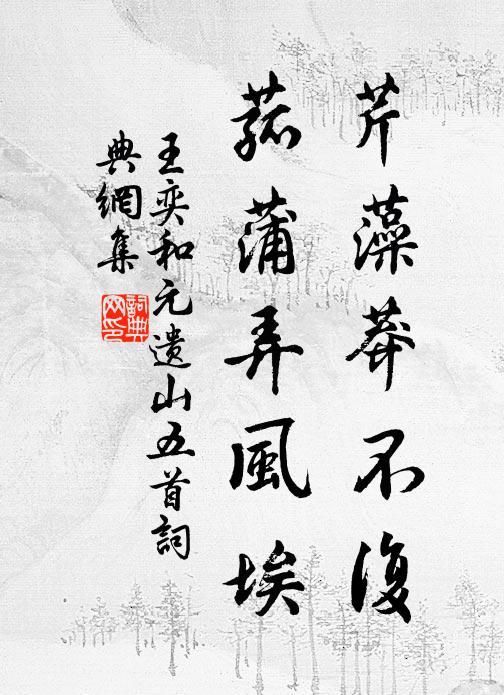 芹藻莽不復
菰蒲弄風埃
王奕和元遺山五首詞
典網集
詞典网印